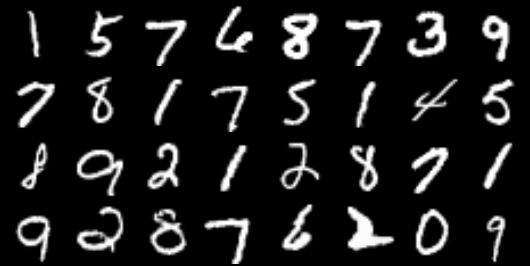 1 5 7 6 8 7 3 9
7 8 1 7 5 1 4 5
8 9 2 1 2 8 7 1
9 2 8 7 6 2 0 9